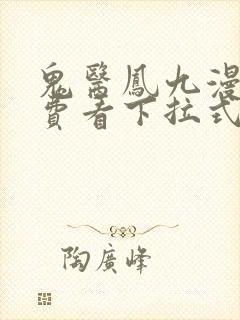 鬼醫鳳九漫
費看下拉式
陶廣峰